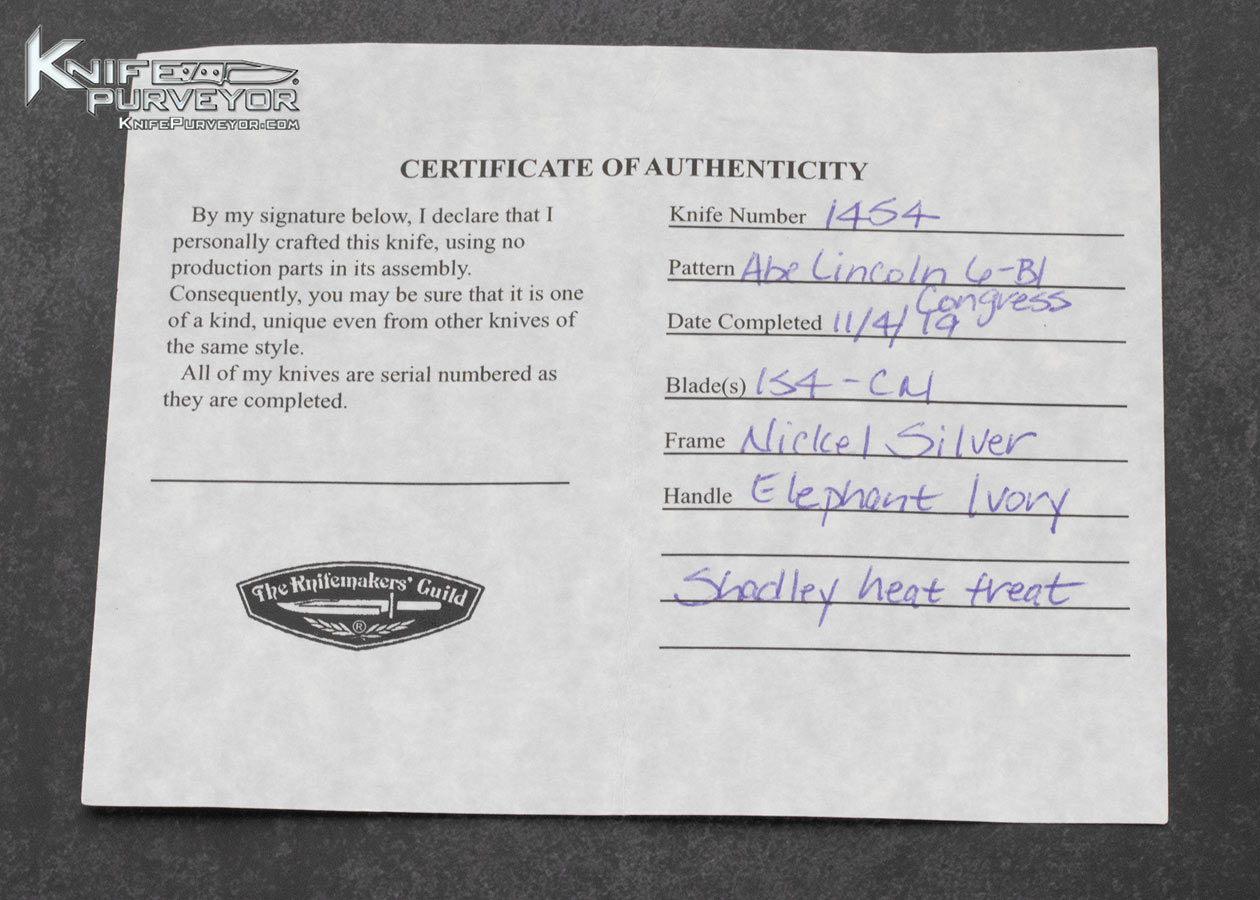 KNIFE
PURVEYOR
KNIFEPURVEYOR.COM
CERTIFICATE OF AUTHENTICITY
By my signature below, I declare that I
personally crafted this knife, using no
production parts in its assembly.
Consequently, you may be sure that it is one
of a kind, unique even from other knives of
the same style.
All of my knives are serial numbered as
they are completed.
The Knifemakers' Guild
®
Knife Number 1454
Pattern Abe Lincoln 6-Bl
Congress
Date Completed 11/4/19
Blade(s) 154-CM
Frame Nickel Silver
Handle Elephant Ivory
Shadley heat treat